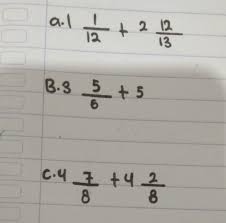 a. 1 1/12 + 2 12/13
B. 8 5/6 + 5
C. 4 7/8 + 4 2/8